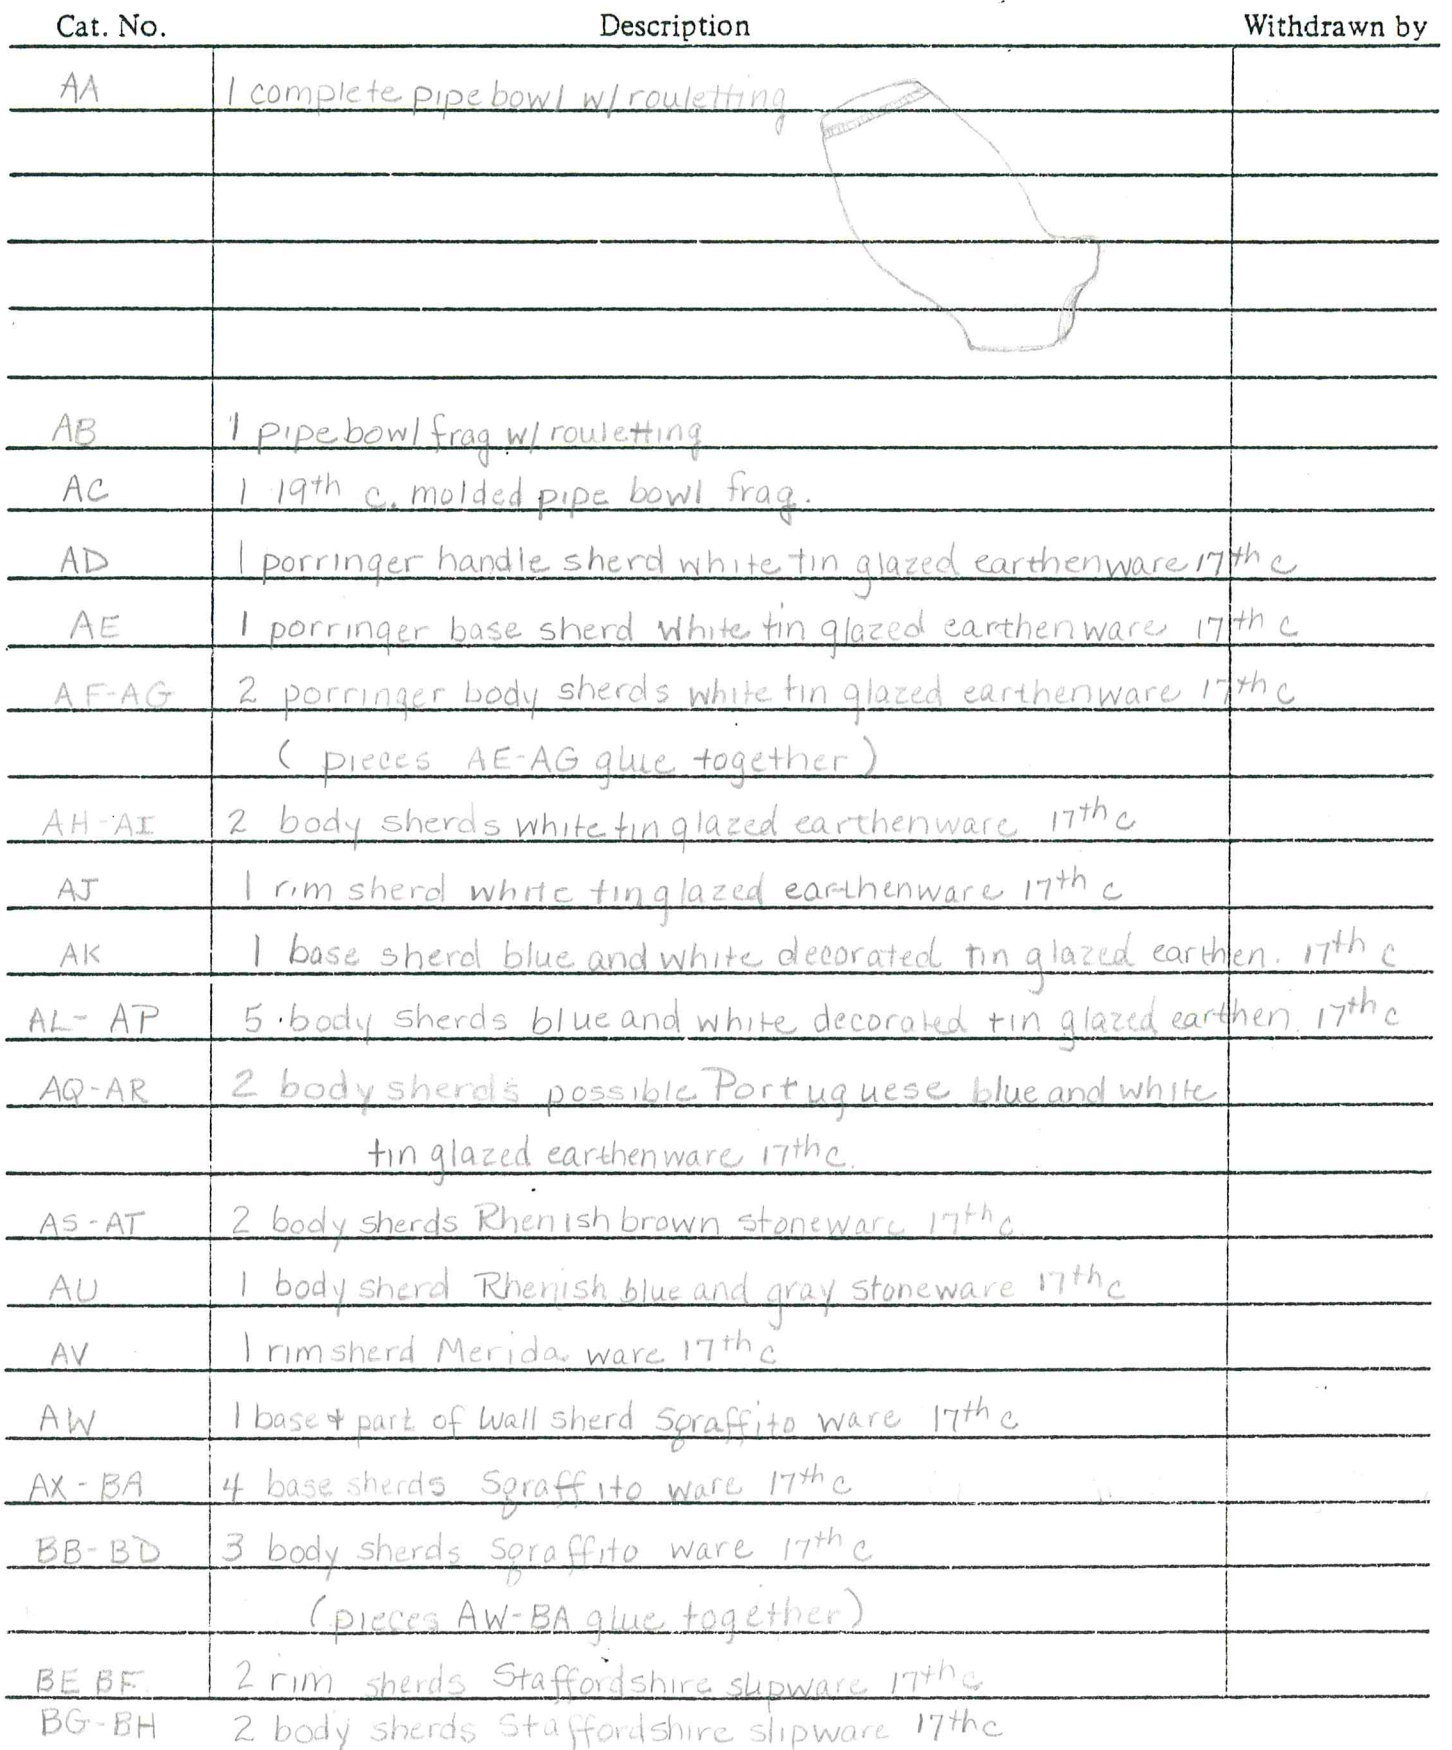 Cat. No. Description Withdrawn by
AA 1 complete pipe bowl w/ rouletting
AB 1 pipe bowl frag w/ rouletting
AC 1 19th c. molded pipe bowl frag.
AD 1 porringer handle sherd white tin glazed earthenware 17th c
AE 1 porringer base sherd white tin glazed earthenware 17th c
AF-AG 2 porringer body sherds white tin glazed earthenware 17th c
( pieces AE-AG glue together )
AH-AI 2 body sherds white tin glazed earthenware 17th c
AJ 1 rim sherd white tin glazed earthenware 17th c
AK 1 base sherd blue and white decorated tin glazed earthen. 17th c
AL-AP 5 body sherds blue and white decorated tin glazed earthen. 17th c
AQ-AR 2 body sherds possible Portuguese blue and white
tin glazed earthenware 17th c.
AS-AT 2 body sherds Rhenish brown stoneware 17th c
AU 1 body sherd Rhenish blue and gray stoneware 17th c
AV 1 rim sherd Merida ware 17th c
AW 1 base + part of wall sherd Sgraffito ware 17th c
AX-BA 4 base sherds Sgraffito ware 17th c
BB-BD 3 body sherds Sgraffito ware 17th c
(pieces AW-BA glue together)
BE BF 2 rim sherds Staffordshire slipware 17th c
BG-BH 2 body sherds Staffordshire slipware 17th c